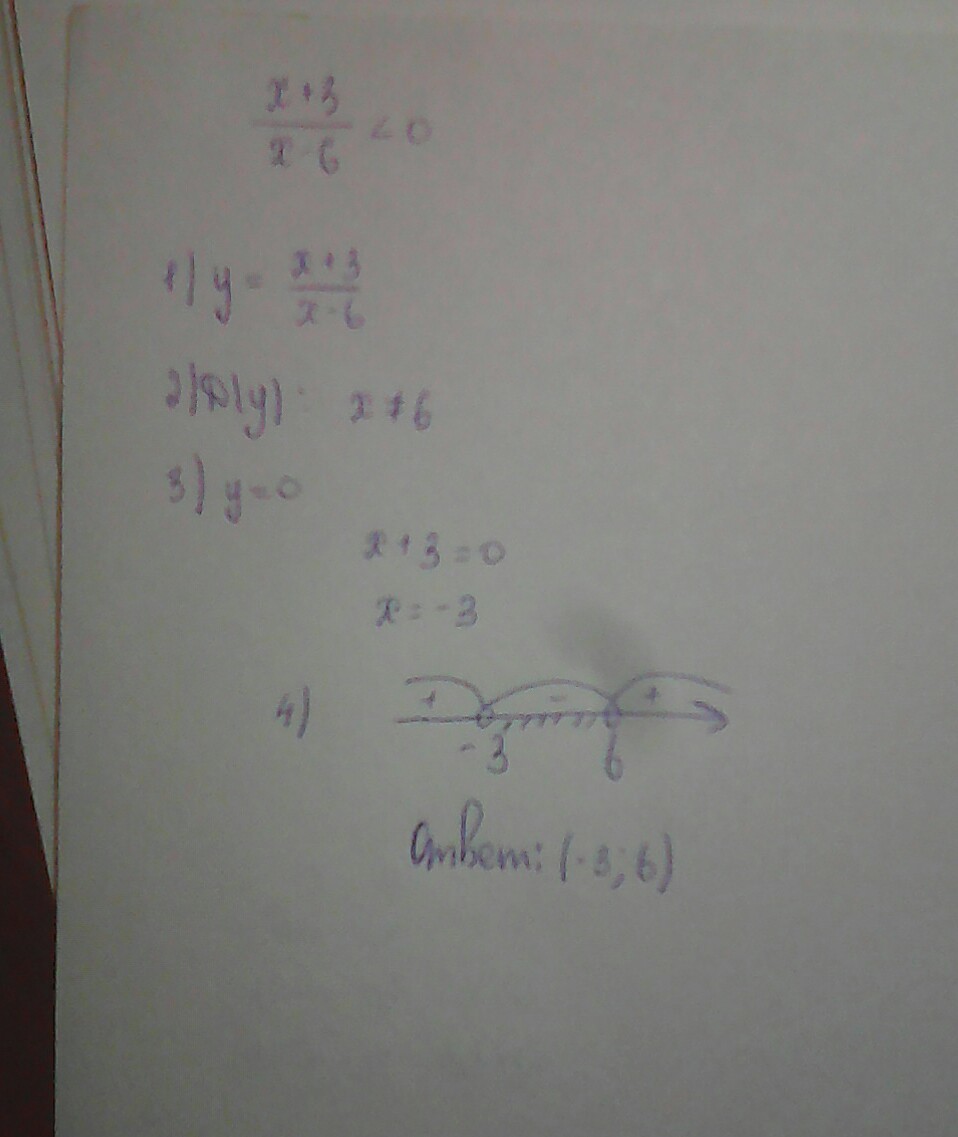 x+3
x-6 < 0
1) y = x+3
x-6
2) D(y): x ≠ 6
3) y=0
x+3=0
x=-3
4) + - +
-3 6
Ответ: (-3; 6)